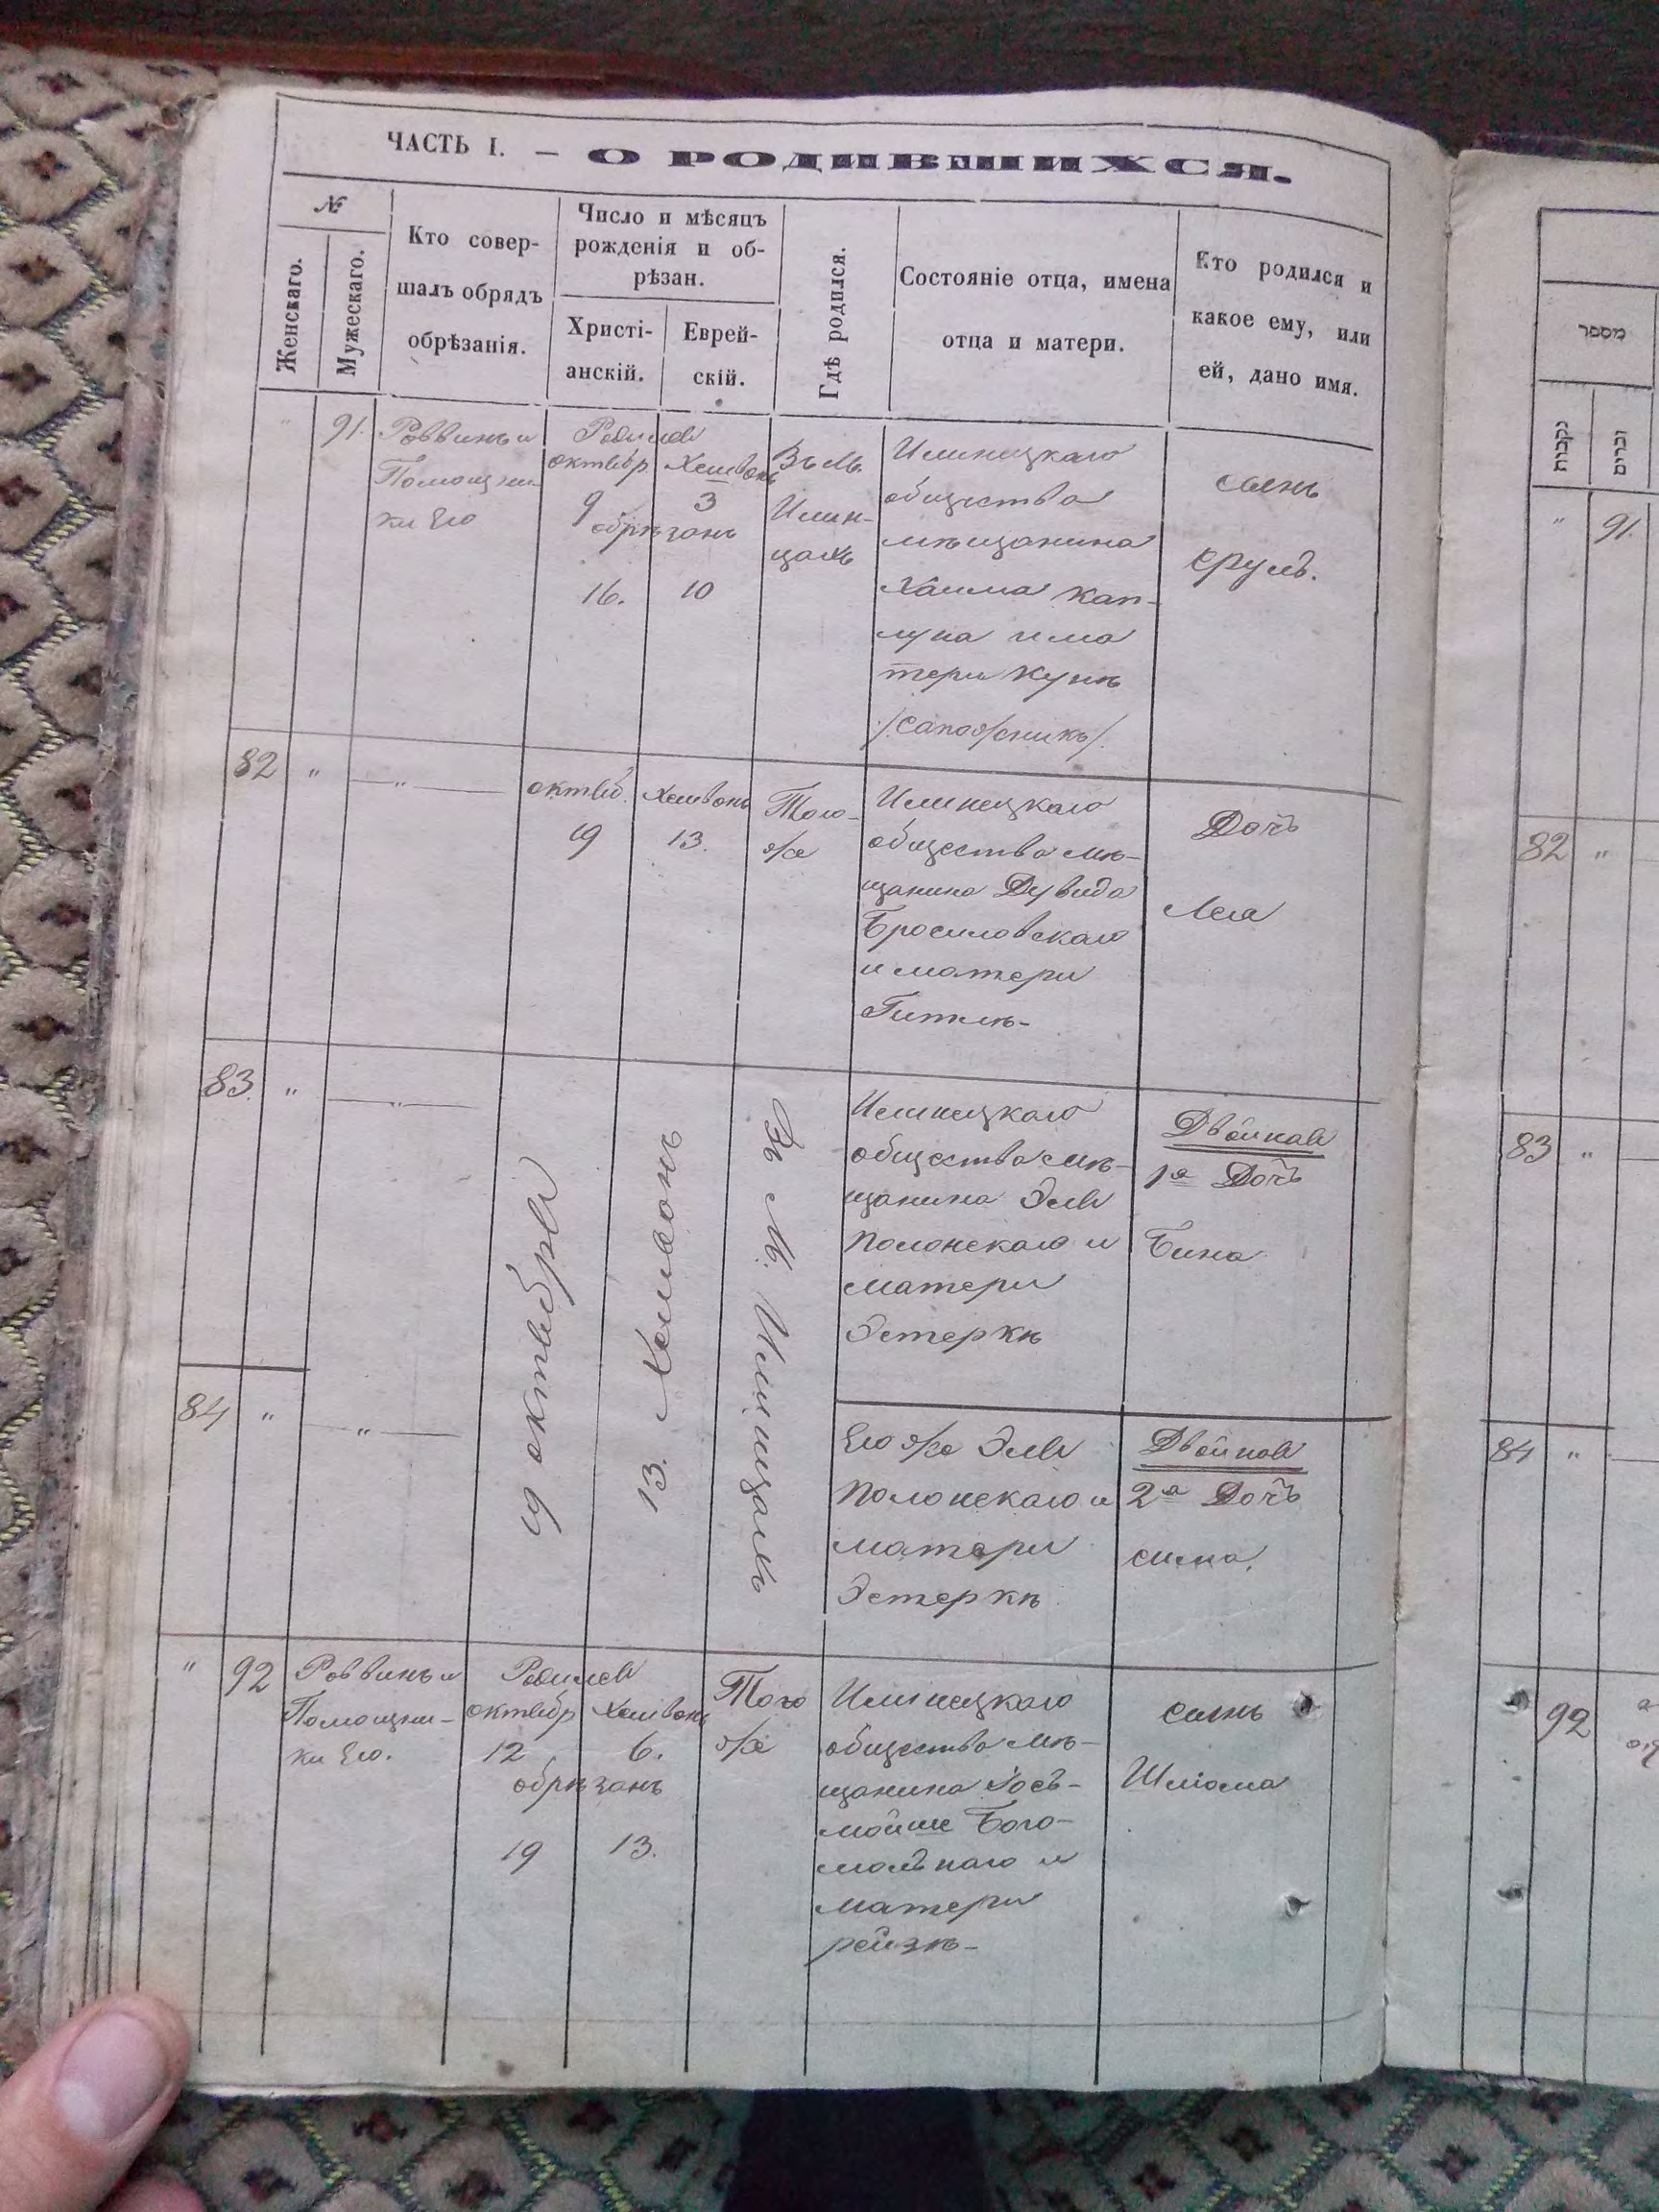 ЧАСТЬ I. — О РОДИВШИХСЯ.
№
Женскаго.
Мужескаго.
Кто совер-
шалъ обрядъ
обрѣзанія.
Число и мѣсяцъ
рожденія и об-
рѣзан.
Христі-
анскій.
Еврей-
скій.
Гдѣ родился.
Состояніе отца, имена
отца и матери.
Кто родился и
какое ему, или
ей, дано имя.
"
91.
Раввинъ и
Помощни-
ки Его
Родился
октябр Хешвонъ
9 3
обрѣзанъ
16. 10
Въ М.
Илин-
цахъ
Илинецкаго
общества
мѣщанина
Хаима Кап-
луна и ма
тери Кунѣ
/Сапожникъ/.
сынъ
Сруль.
82 " — " —
октяб. Хешвонъ
19 13.
Того-
же
Илинецкаго
общества мѣ-
щанина Дувида
Бросиловскаго
и матери
Гитлѣ-
Дочь
Лея
83. " — " —
19 октября
13. Хешвонъ
Въ М. Илинцахъ
Илинецкаго
общества мѣ-
щанина Эля
Полонскаго и
матери
Эстеркѣ
Двойная
1я Дочь
Бина
84 " — " —
Его же Эля
Полонскаго и
матери
Эстеркѣ
Двойная
2я Дочь
Сима.
" 92
Раввинъ и
Помощни-
ки Его.
Родился
октябр Хешвонъ
12 6.
обрѣзанъ
19 13.
Того
же
Илинецкаго
общества мѣ-
щанина Іось-
мойше Бого-
мольнаго и
матери
Рейзѣ-
сынъ
Шліома
מספר
נקבות
זכרים
" 91.
82 "
83 "
84 "
92